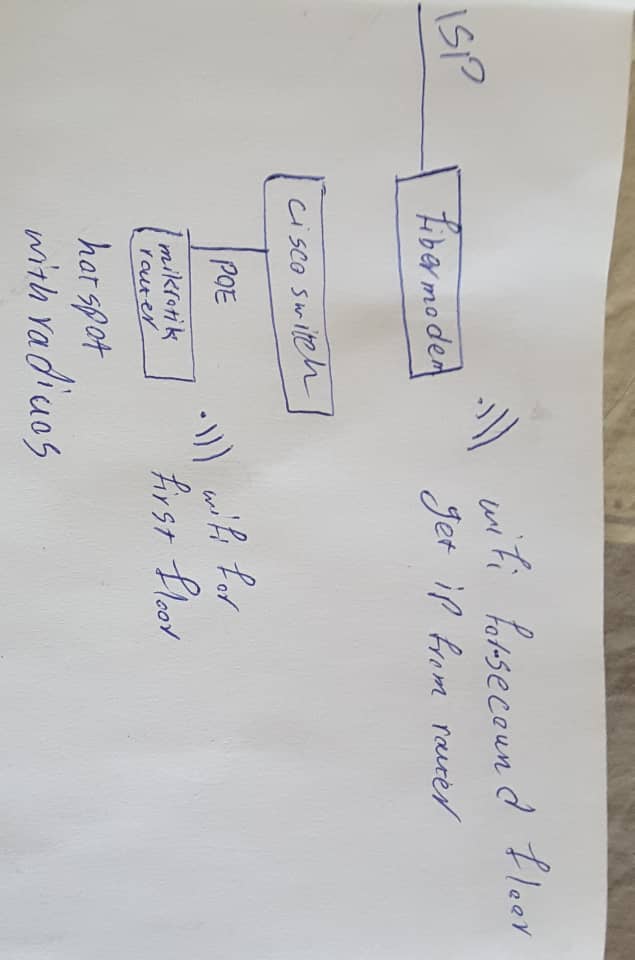 ISP
fibermodem
wifi for secound floor
get ip from router
cisco switch
POE
mikrotik
router
wifi for
first floor
hotspot
with radiuos